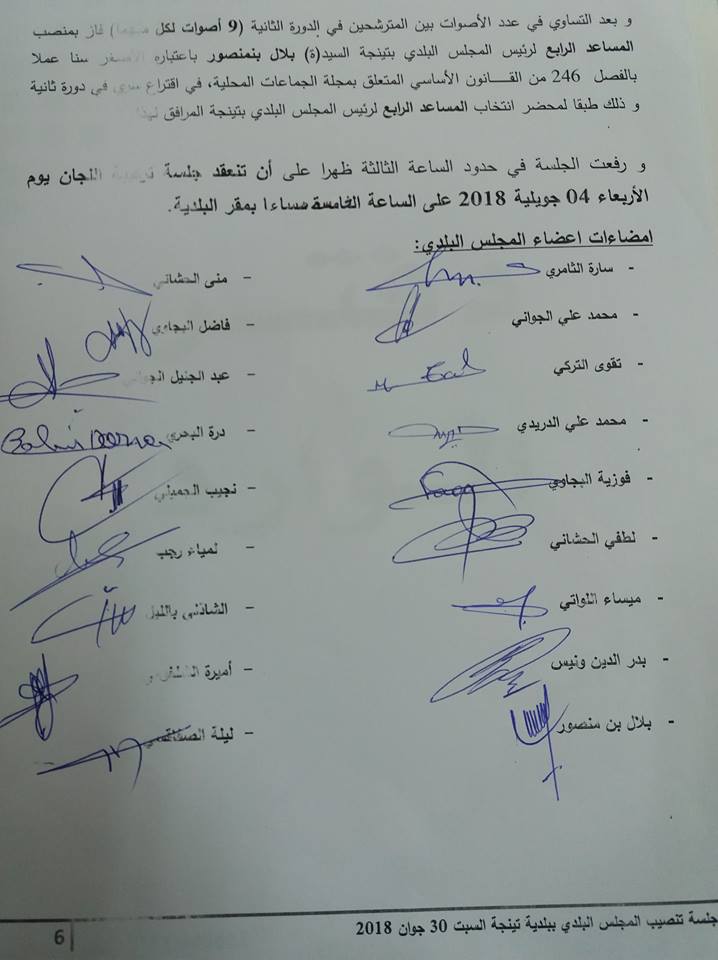 و بعد التساوي في عدد الأصوات بين المترشحين في الدورة الثانية (9 أصوات لكل منهما) فاز بمنصب
المساعد الرابع لرئيس المجلس البلدي بتينجة السيد(ة) بلال بنمنصور باعتباره الأصغر سنا عملا
بالفصل 246 من القانون الأساسي المتعلق بمجلة الجماعات المحلية، في اقتراع سري في دورة ثانية
و ذلك طبقا لمحضر انتخاب المساعد الرابع لرئيس المجلس البلدي بتينجة المرافق لهذا.
و رفعت الجلسة في حدود الساعة الثالثة ظهرا على أن تنعقد جلسة اللجان يوم
الأربعاء 04 جويلية 2018 على الساعة الخامسة مساءا بمقر البلدية.
امضاءات اعضاء المجلس البلدي:
- سارة الثامري
- محمد علي الجواني
- تقوى التركي
- محمد علي الدريدي
- فوزية البجاوي
- لطفي الحشاني
- ميساء اللواتي
- بدر الدين ونيس
- بلال بن منصور
- منى الحشاني
- فاضل البجاوي
- عبد الجليل
- درة البحري
- نجيب الحميلي
- لمياء رجب
- الشاذلي بالليل
- أميرة
- ليلة الصفاقسي
جلسة تنصيب المجلس البلدي ببلدية تينجة السبت 30 جوان 2018
6